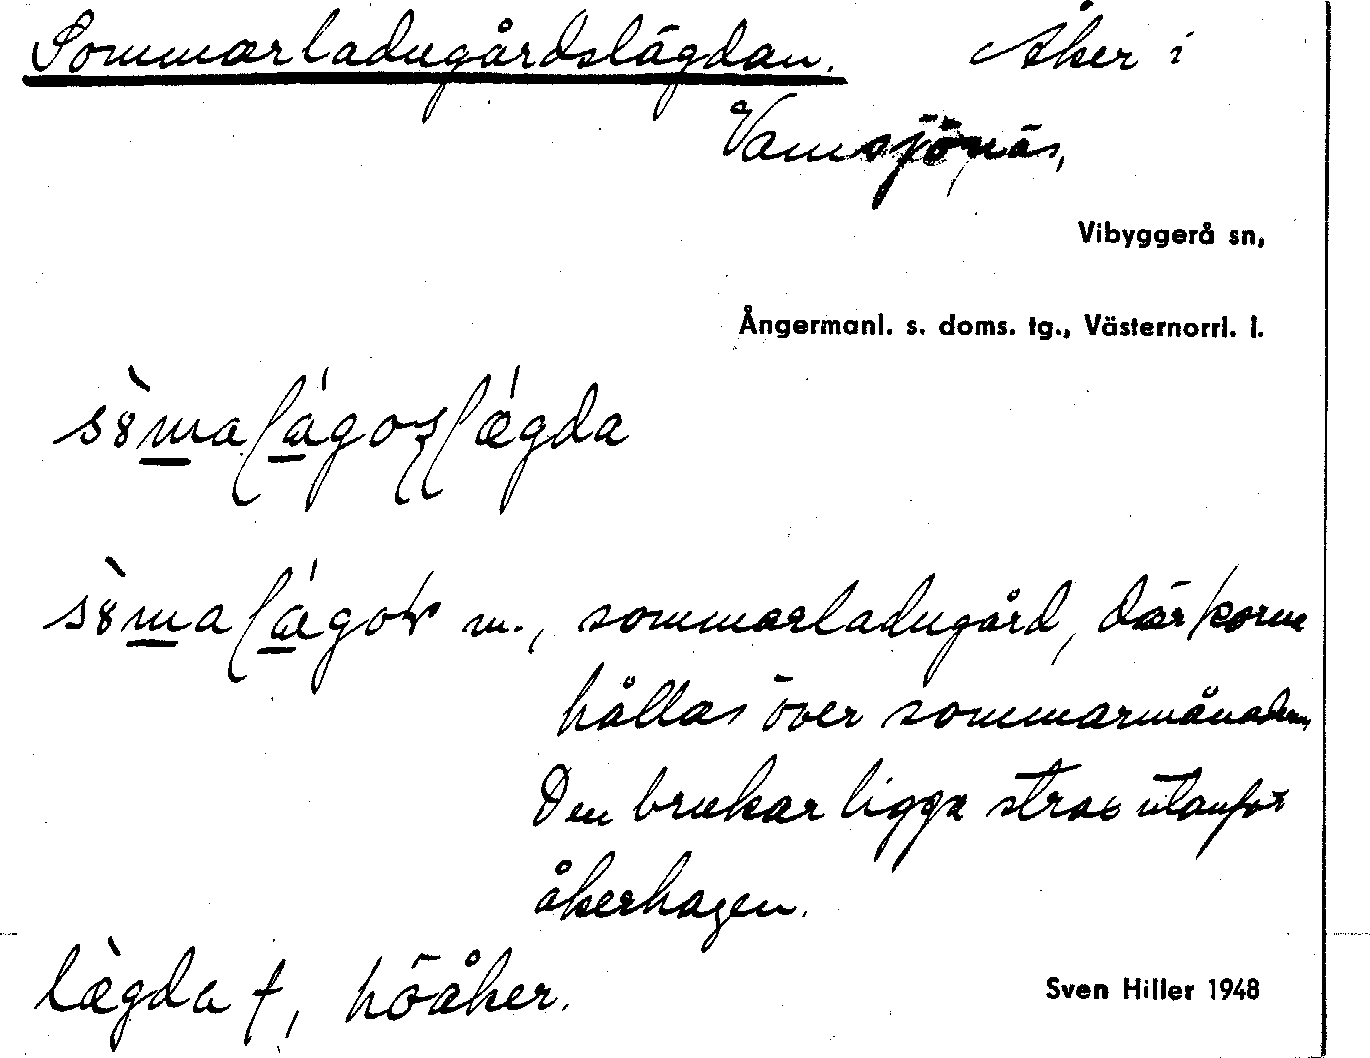 Sommarladugårdslägdan. Åker i
Vamsjönäs,
Vibyggerå sn,
Ångermanl. s. doms. tg., Västernorrl. l.
m., sommarladugård, där korna
hållas över sommarmånaderna.
Den brukar ligga strax utanför
åkerhagen.
lægda f, höåker.
Sven Hiller 1948